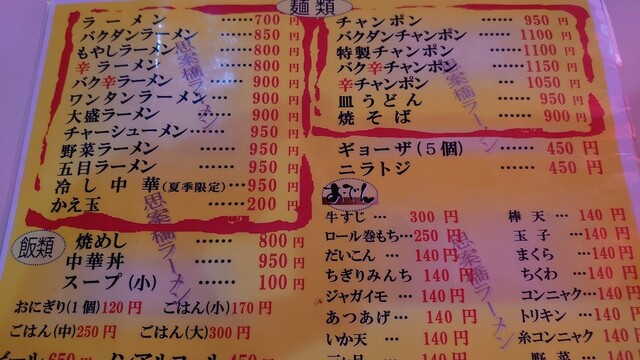 麺類
ラーメン ……700円
バクダンラーメン ……850円
もやしラーメン ……850円
辛ラーメン ……850円
バク辛ラーメン ……900円
ワンタンラーメン ……900円
大盛ラーメン ……900円
チャーシューメン ……950円
野菜ラーメン ……950円
五目ラーメン ……950円
冷し中華(夏季限定)……950円
かえ玉 ……200円
チャンポン ……950円
バクダンチャンポン ……1100円
特製チャンポン ……1100円
バク辛チャンポン ……1150円
辛チャンポン …1050円
皿うどん ……950円
焼そば ……900円
ギョーザ(5個) ……450円
ニラトジ ……450円
飯類
焼めし ……800円
中華丼 ……950円
スープ(小) ……100円
おにぎり(1個)120円 ごはん(小)170円
ごはん(中)250円 ごはん(大)300円
ビール…650円 ノンアルコール…450円
おでん
牛すじ … 300円
ロール巻もち…250円
だいこん … 140円
ちぎりみんち 140円
ジャガイモ … 140円
あつあげ … 140円
いか天 … 140円
棒天 … 140円
玉子 … 140円
まくら … 140円
ちくわ … 140円
コンニャク…140円
トリキン … 140円
糸コンニャク 140円
野菜 … 140円
思案橋ラーメン
思案橋ラーメン
思案橋ラーメン
思案橋ラーメン